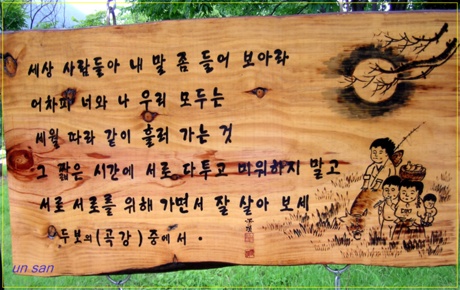 세상 사람들아 내 말 좀 들어 보아라
어차피 너와 나 우리 모두는
세월 따라 같이 흘러 가는 것
그 짧은 시간에 서로 다투고 미워하지 말고
서로 서로를 위해 가면서 잘 살아 보세
두보의(곡강) 중에서 .
un san